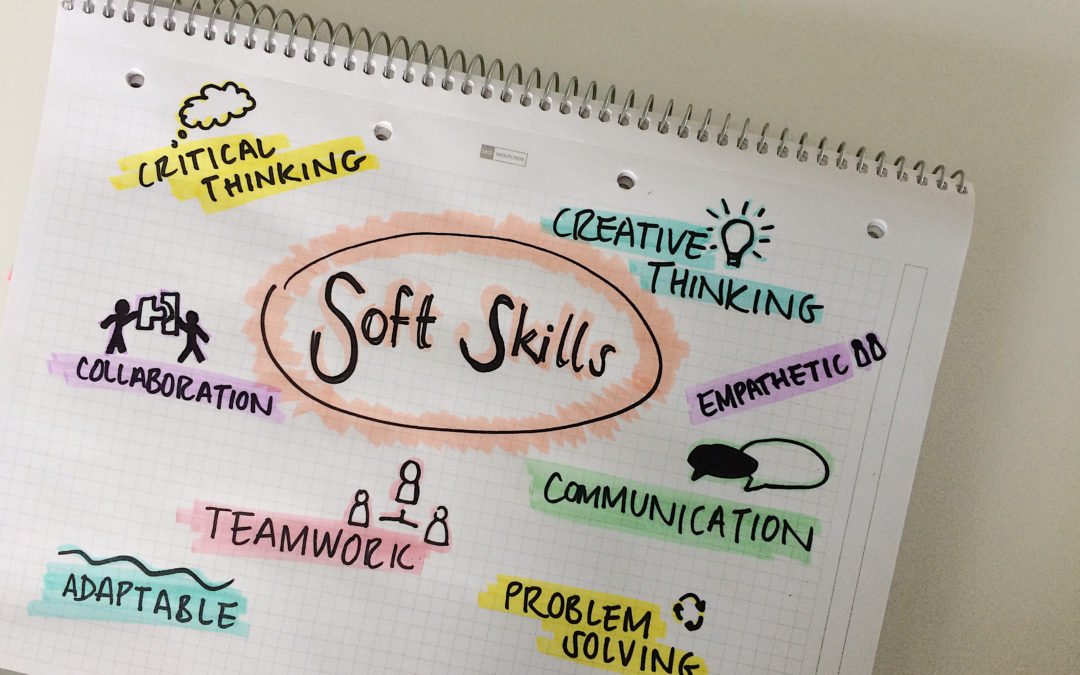 CRITICAL
THINKING
CREATIVE
THINKING
Soft Skills
COLLABORATION
EMPATHETIC
COMMUNICATION
TEAMWORK
ADAPTABLE
PROBLEM
SOLVING